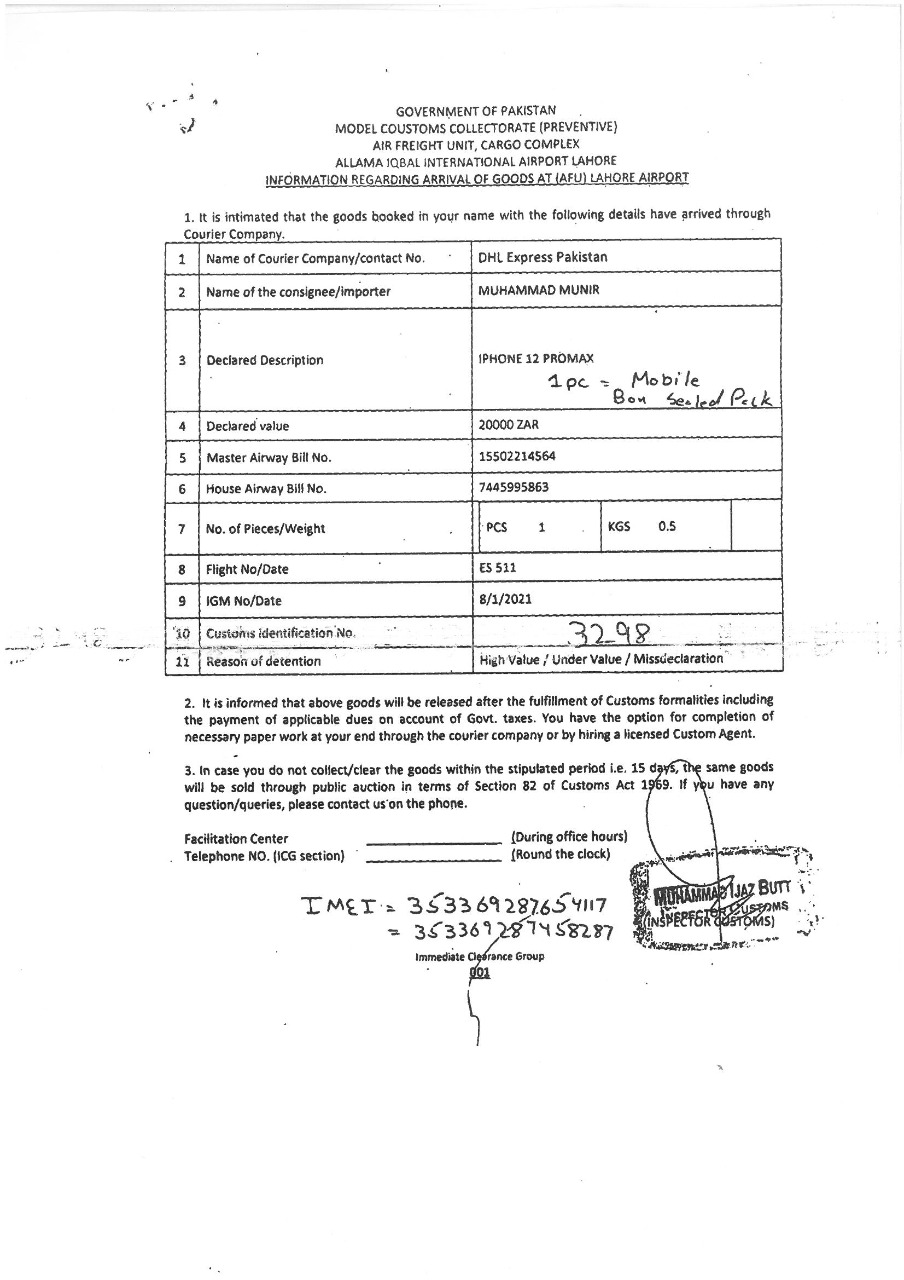 GOVERNMENT OF PAKISTAN
MODEL COUSTOMS COLLECTORATE (PREVENTIVE)
AIR FREIGHT UNIT, CARGO COMPLEX
ALLAMA IQBAL INTERNATIONAL AIRPORT LAHORE
INFORMATION REGARDING ARRIVAL OF GOODS AT (AFU) LAHORE AIRPORT
1. It is intimated that the goods booked in your name with the following details have arrived through
Courier Company.
1 Name of Courier Company/contact No. DHL Express Pakistan
2 Name of the consignee/importer MUHAMMAD MUNIR
3 Declared Description IPHONE 12 PROMAX
1 pc = Mobile
Box Sealed Pack
4 Declared value 20000 ZAR
5 Master Airway Bill No. 15502214564
6 House Airway Bill No. 7445995863
7 No. of Pieces/Weight PCS 1 KGS 0.5
8 Flight No/Date ES 511
9 IGM No/Date 8/1/2021
10 Customs Identification No. 3298
11 Reason of detention High Value / Under Value / Missdeclaration
2. It is informed that above goods will be released after the fulfillment of Customs formalities including
the payment of applicable dues on account of Govt. taxes. You have the option for completion of
necessary paper work at your end through the courier company or by hiring a licensed Custom Agent.
3. In case you do not collect/clear the goods within the stipulated period i.e. 15 days, the same goods
will be sold through public auction in terms of Section 82 of Customs Act 1969. If you have any
question/queries, please contact us on the phone.
Facilitation Center (During office hours)
Telephone NO. (ICG section) (Round the clock)
MUHAMMAD IJAZ BUTT
INSPECTOR CUSTOMS
(INSPECTOR CUSTOMS)
IMEI = 353369287654117
= 353369287458287
Immediate Clearance Group
001